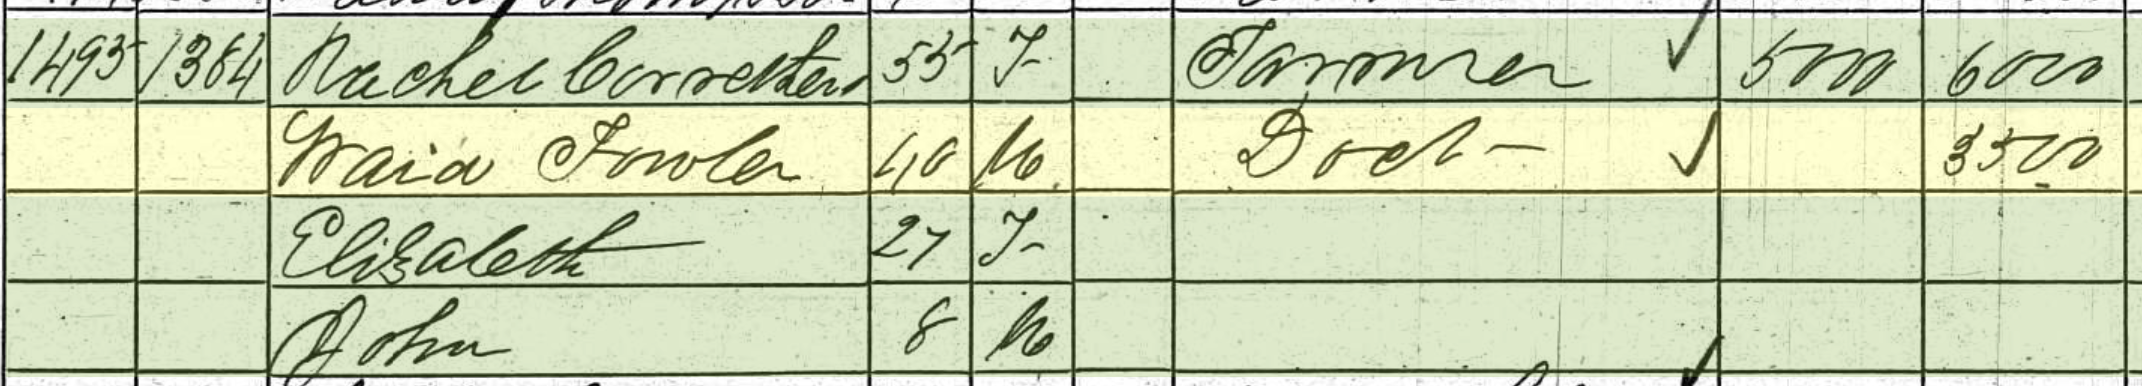 1495 1364 Rachel 55 F Farmer ✓ 5000 6000
Waid Fowler 40 M Doct- ✓ 3500
Elizabeth 27 F
John 8 M